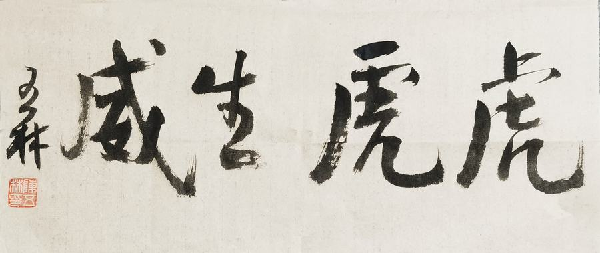 虎虎生威